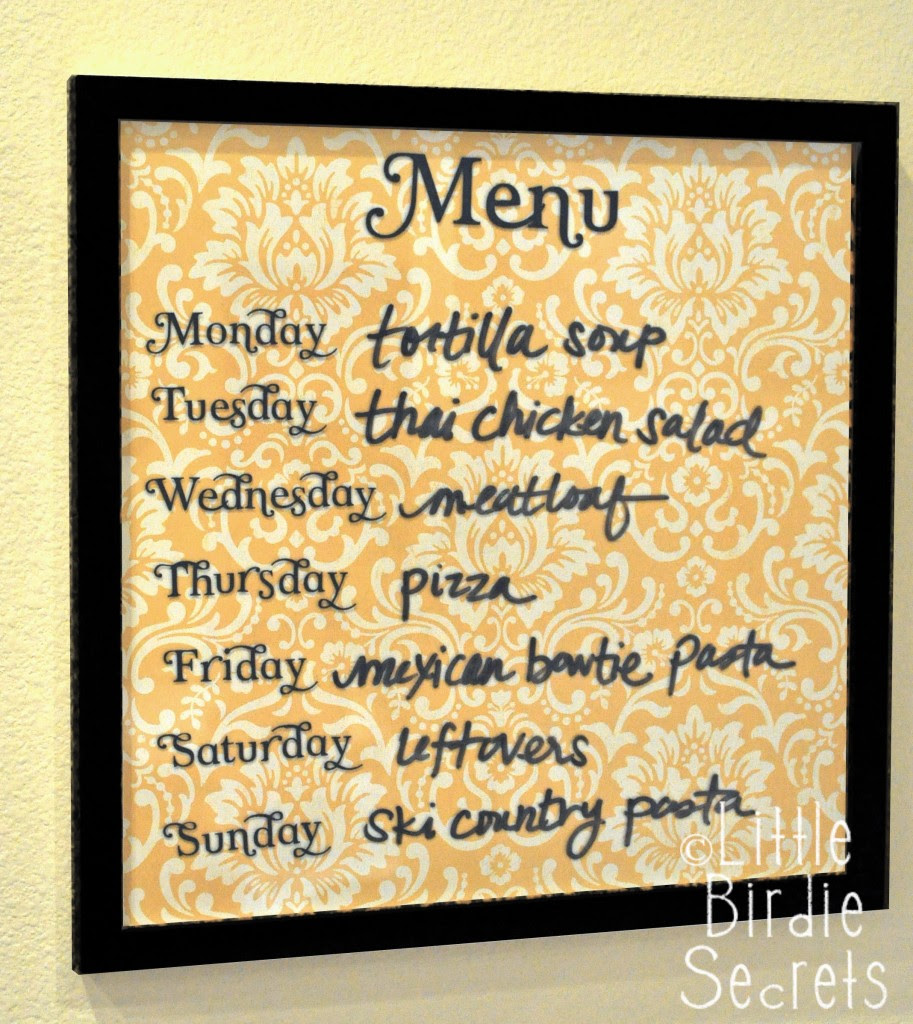 Menu
Monday tortilla soup
Tuesday thai chicken salad
Wednesday meatloaf
Thursday pizza
Friday mexican bowtie pasta
Saturday leftovers
Sunday ski country pasta
©Little
Birdie
Secrets